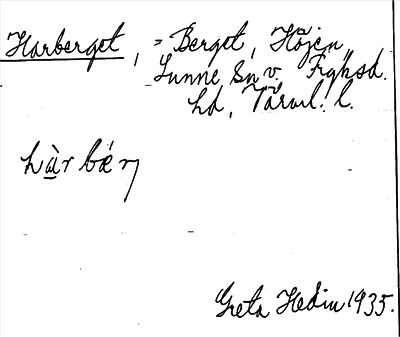 Harberget, = Berget, Höjen,
Sunne Sn v. Fryksd.
hd, Värml. l.
hàr bǽrj
Greta Hedin 1935.